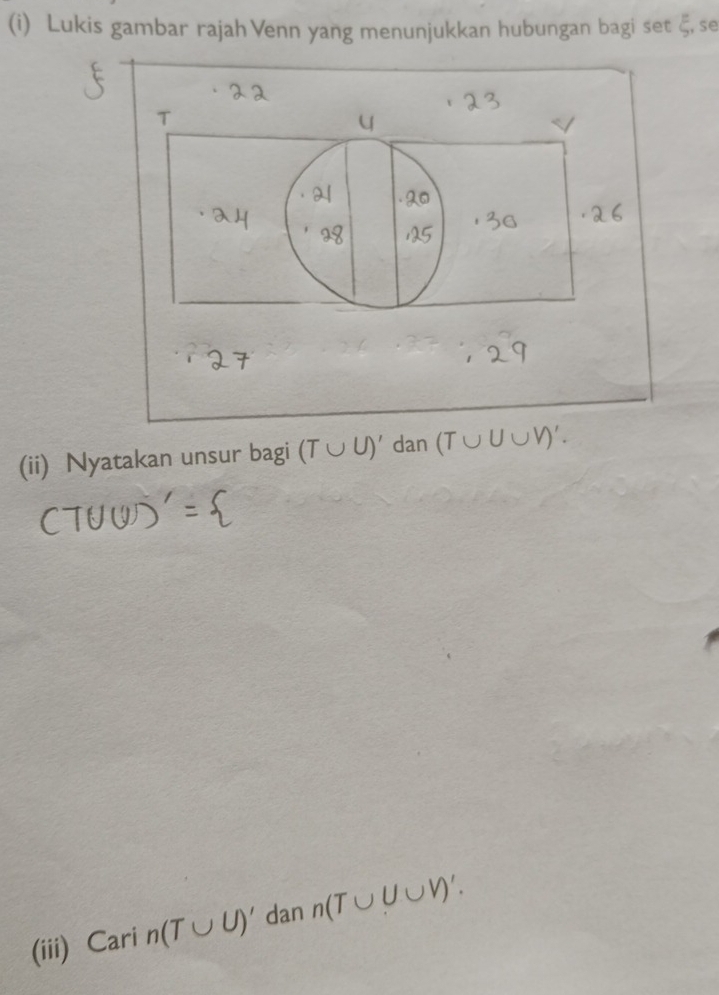 (i) Lukis gambar rajah Venn yang menunjukkan hubungan bagi set ξ, se
ξ
.22 .23
T U V
.24 .21 .20 .30 .26
.28 .25
.27 .29
(ii) Nyatakan unsur bagi (T ∪ U)′ dan (T ∪ U ∪ V)′.
(T∪U)′ = {
(iii) Cari n(T ∪ U)′ dan n(T ∪ U ∪ V)′.